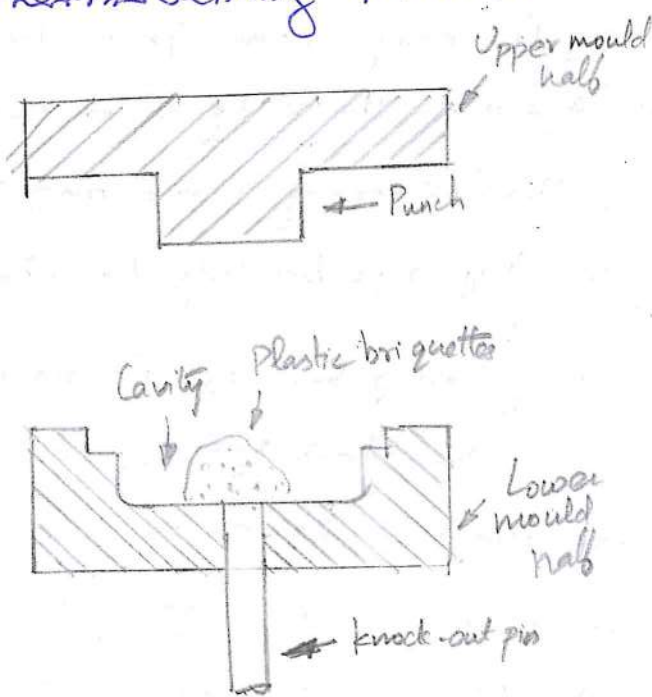 Upper mould
half
Punch
Cavity
Plastic briquettes
Lower
mould
half
knock-out pin